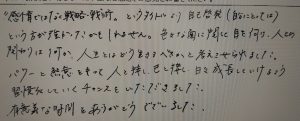 感情ではない戦略・戦術。というタイトルより自己啓発(自分にとっては)
という方が強いかもしれません。色々な角に聞に自を向け、人との
関わりは何か、人生とはどう生きるべきか、と考えさせられました。
パワーと熱意をもって人と接し、己と律し、日々成長していけるよう
習慣化していくチャンスをいただきました。
有意義な時間をありがとうございました。